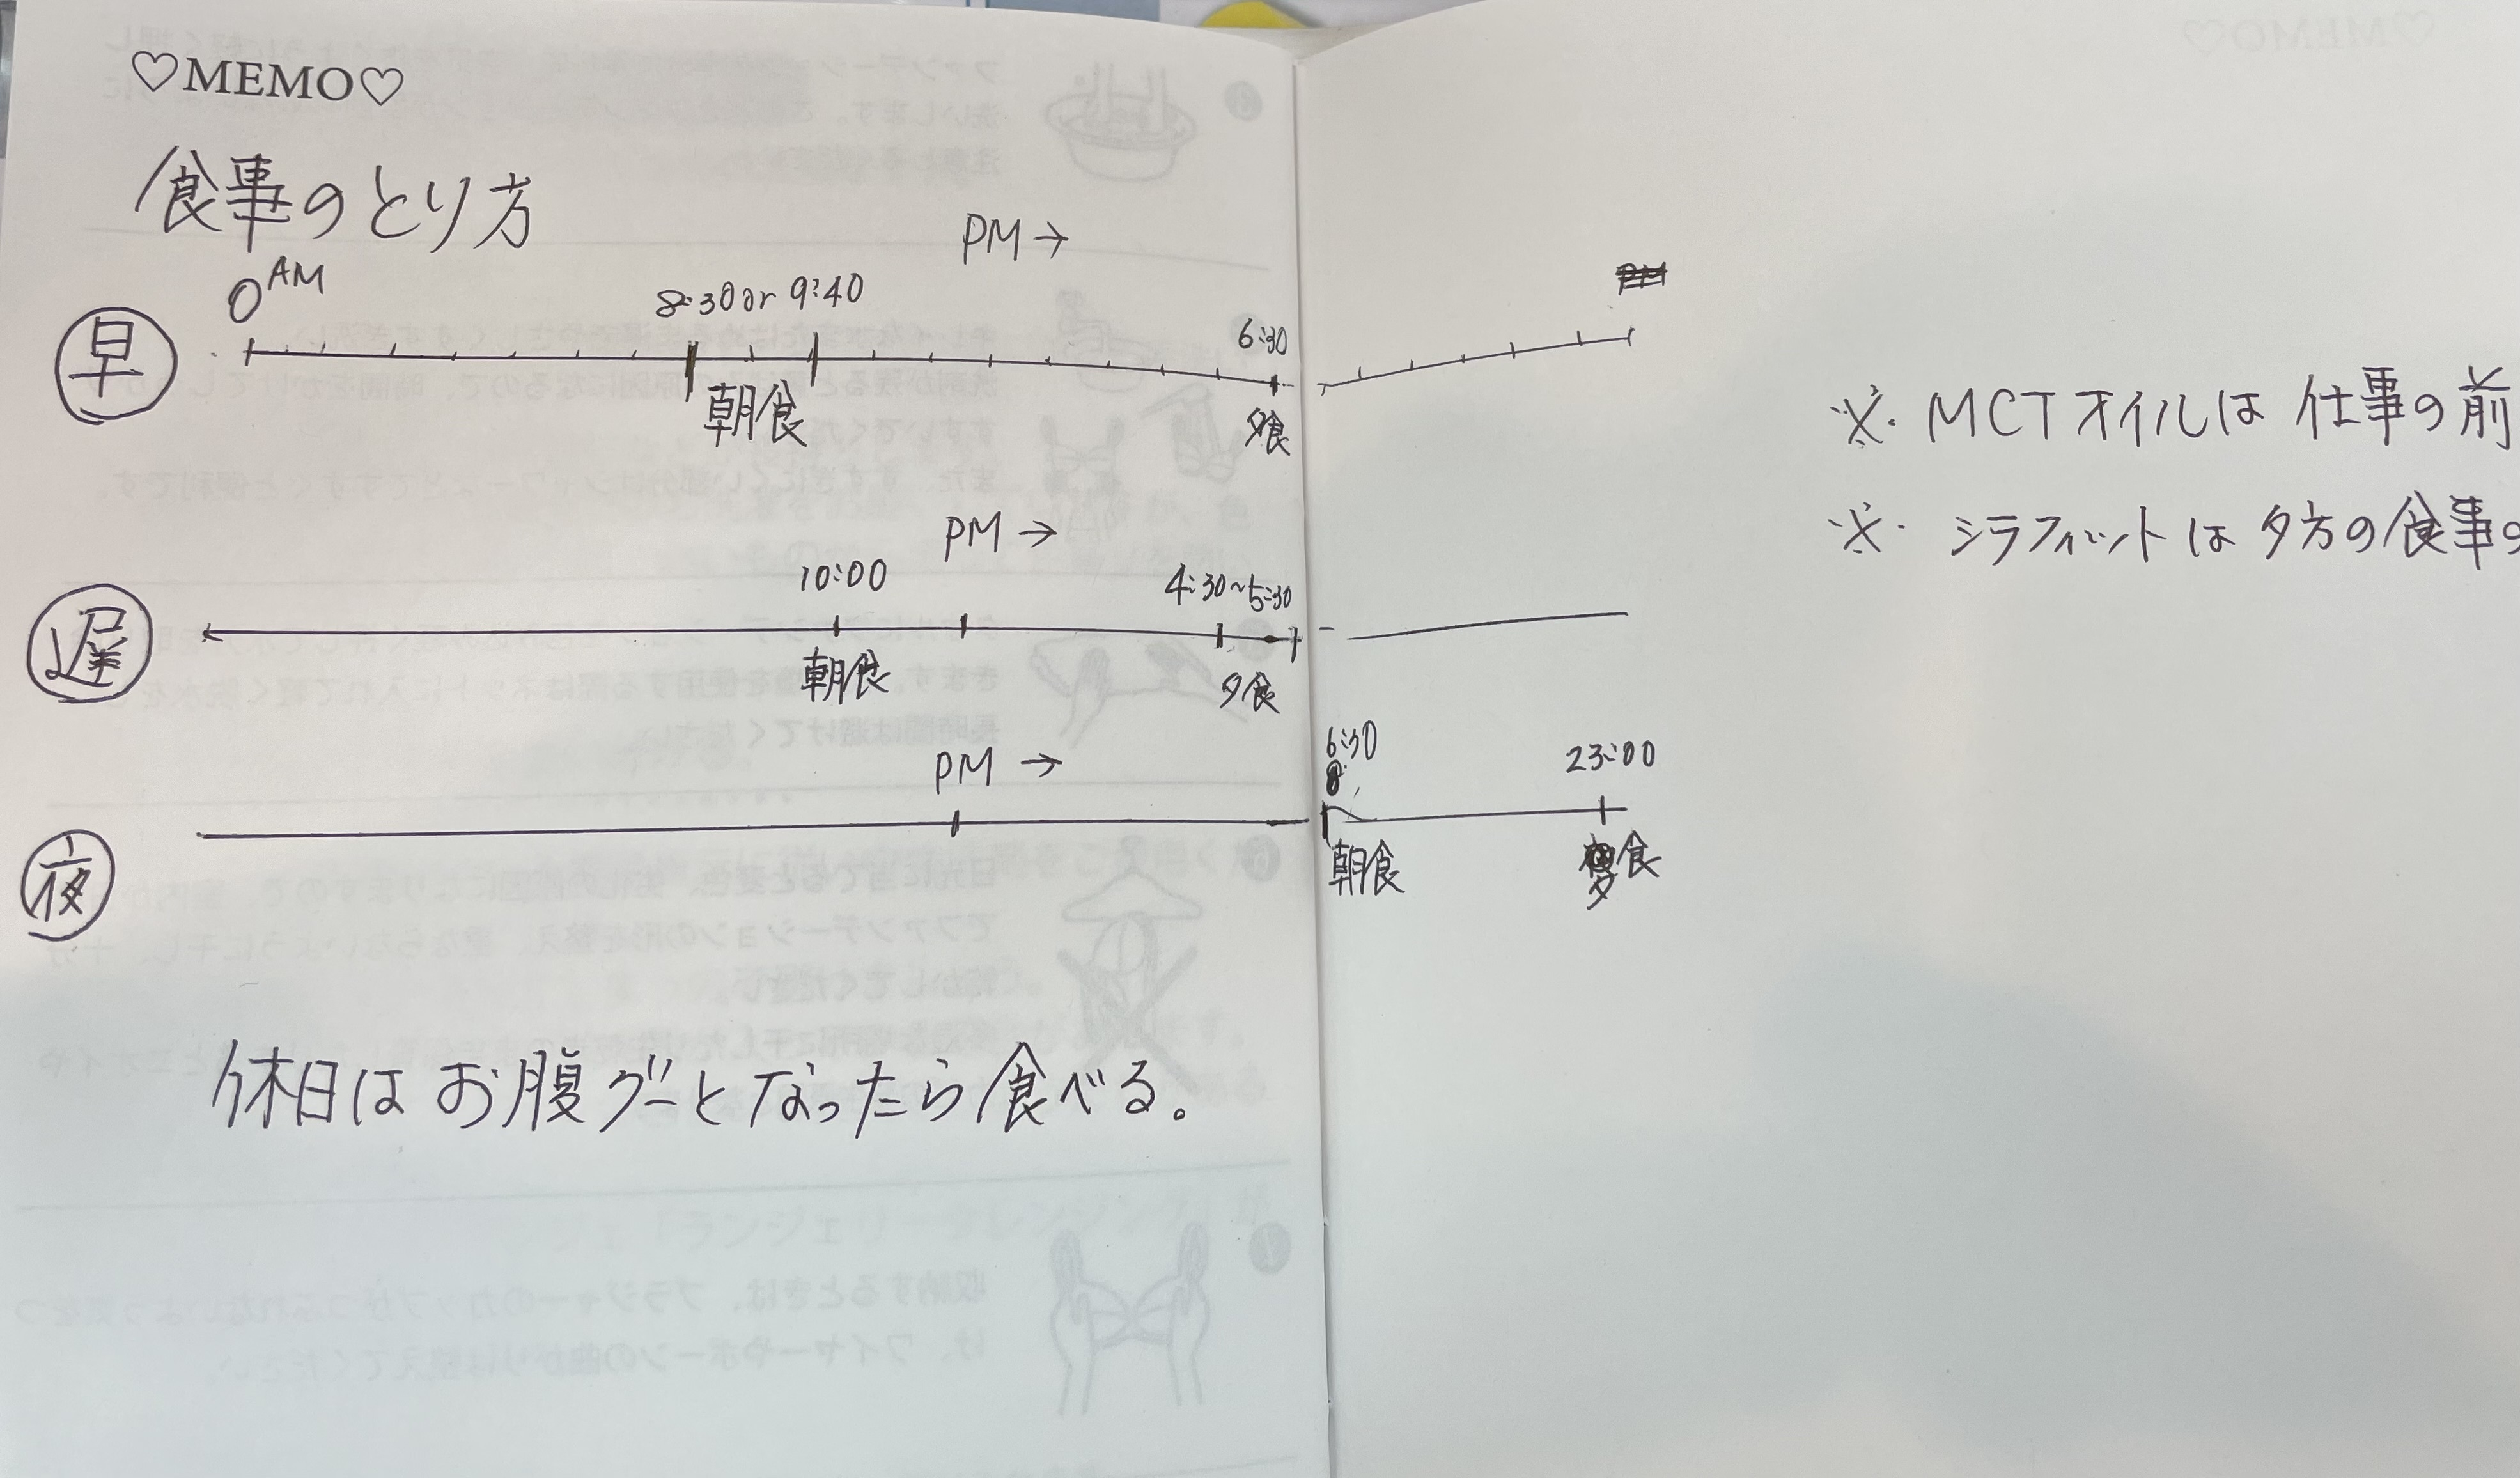 ♡MEMO♡
食事のとり方
PM→
0 AM
8:30 or 9:40
6:30
早
朝食
夕食
※ MCTオイルは 仕事の前
※ シラフィットは 夕方の食事の
PM →
10:00
4:30~5:30
遅
朝食
夕食
PM →
6:30
23:00
夜
朝食
夕食
休日は お腹グーとなったら食べる。